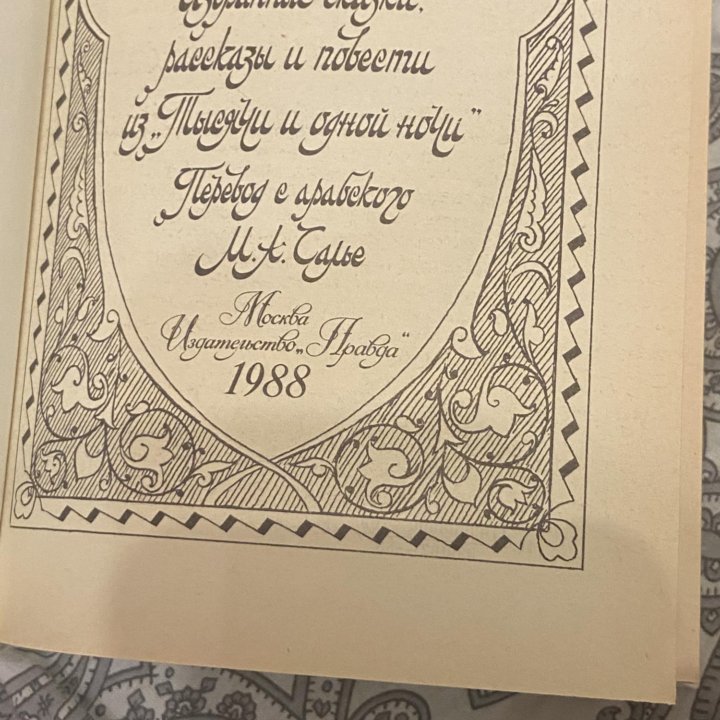 Избранные сказки,
рассказы и повести
из „Тысячи и одной ночи"
Перевод с арабского
М. А. Салье
Москва
Издательство „Правда"
1988